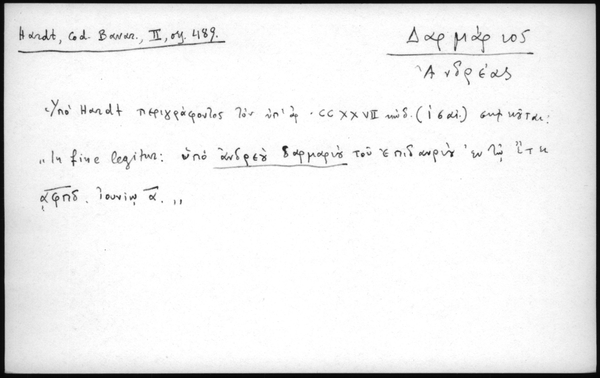 Hardt, Cod. Bavar., II, σ. 489.
Δαρμάριος
Ἀνδρέας
Ὑπό Hardt περιγράφοντος τόν ὑπ' ἀρ. CCXXVII κώδ. (ις αἰ.) σημειοῦται:
„In fine legitur: ὑπό ἀνδρέου δαρμαρίου τοῦ ἐπιδαυρίου ἐν τῷ ἔτει
͵αφπδ. ἰουνίῳ α. „